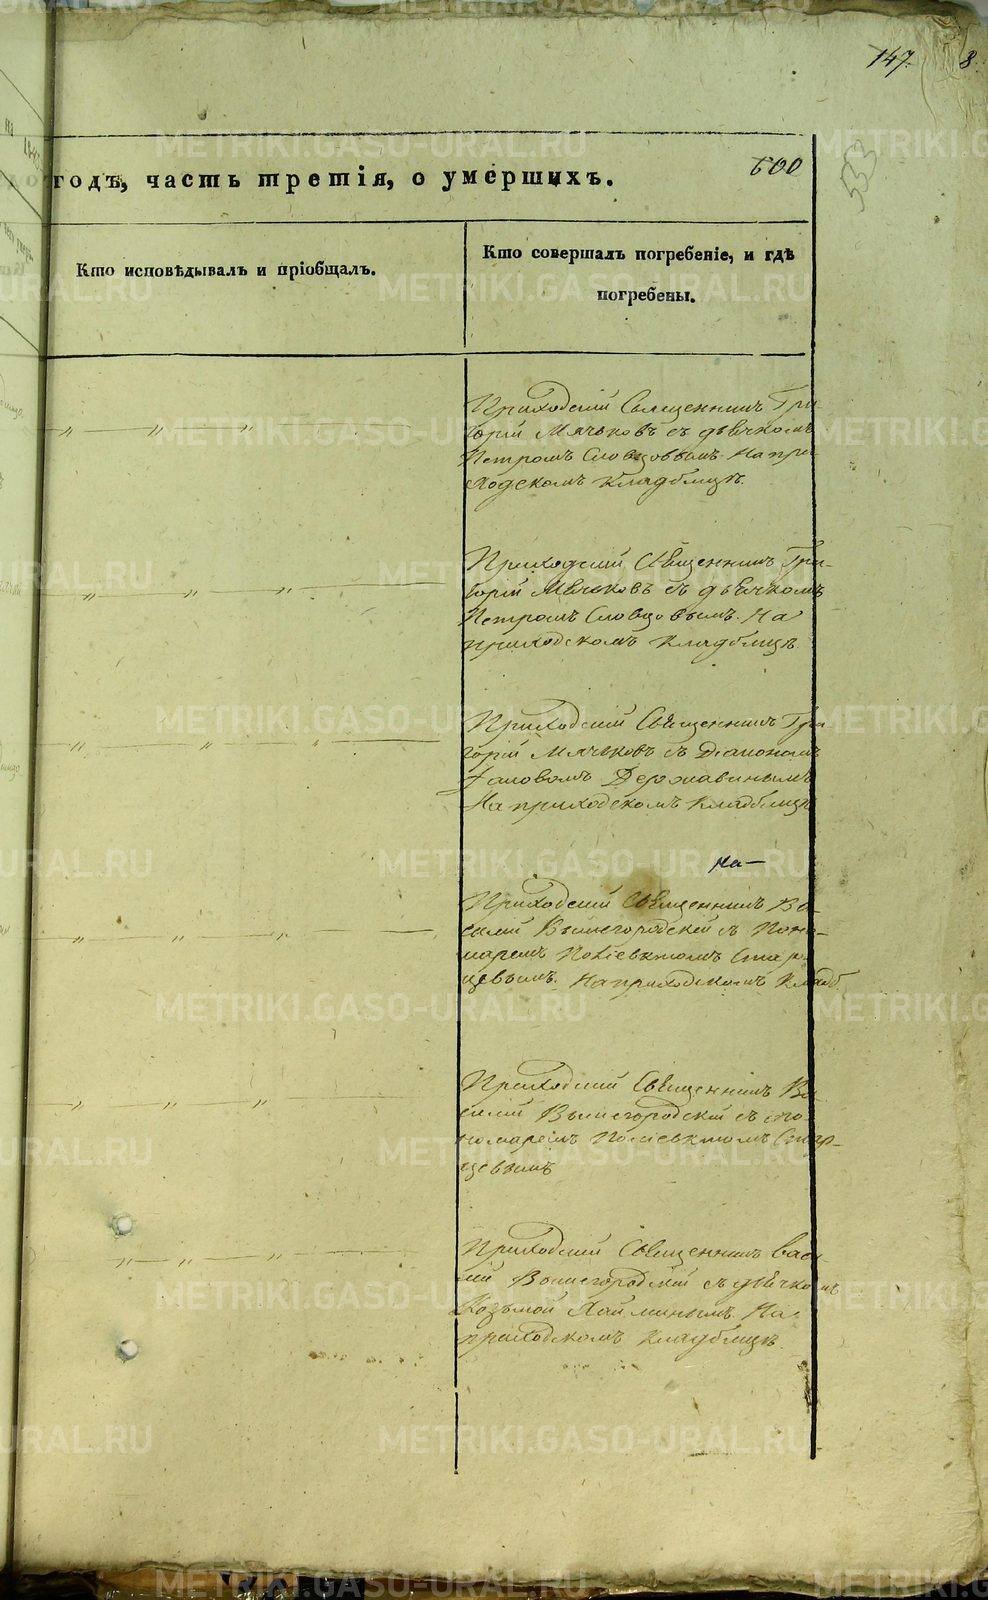 147. 8.
600
553
годъ, часть третія, о умершихъ.
Кто исповѣдывалъ и пріобщалъ.
Кто совершалъ погребеніе, и гдѣ
погребены.
Приходскій Священникъ Гри
горій Мячьковъ съ дьячкомъ
Петромъ Словцовымъ. На при
ходскомъ кладбищѣ.
Приходскій Священникъ Гри-
горій Мячьковъ съ дьячкомъ
Петромъ Словцовымъ. На
приходскомъ кладбищѣ.
Приходскій Священникъ Гри
горій Мячьковъ съ Діакономъ
Іаковомъ Державинымъ
На приходскомъ кладбищѣ
На —
Приходскій Священникъ Ва-
силій Вышегородскій съ Поно-
маремъ Поліевктомъ Стар-
цевымъ. На приходскомъ кладб.
Приходскій Священникъ Ва
силій Вышегородскій съ поно
номаремъ Поліевктомъ Стар-
цевымъ
Приходскій Священникъ Васи
лій Вышегородскій съ дьячкомъ
Козьмой Хайминымъ. На
приходскомъ кладбищѣ.
METRIKI.GASO-URAL.RU